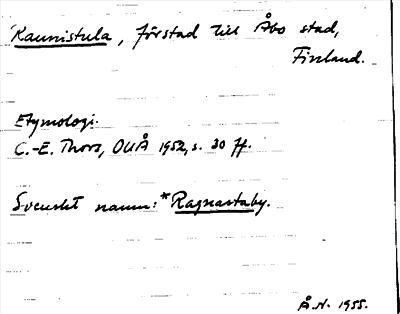 Kaunistula, förstad till Åbo stad,
Finland.
Etymologi.
C.-E. Thors, OUÅ 1952, s. 30 ff.
Svenskt namn: *Ragnastaby.
Å.N. 1955.